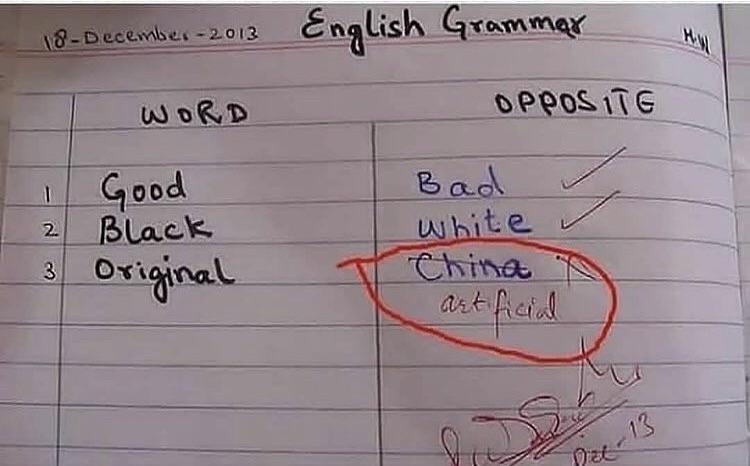 18-December-2013 English Grammar H.W
WORD OPPOSITE
1 Good Bad
2 Black White
3 Original China
artificial
Dec-13